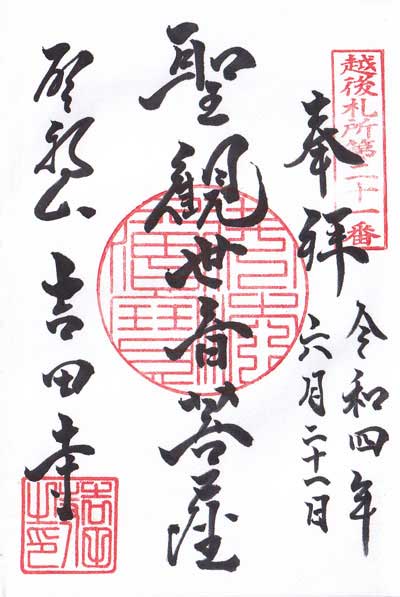 越後札所第二十一番
奉拝
令和四年
六月二十一日
聖観世音菩薩
吉田寺
吉田寺之印